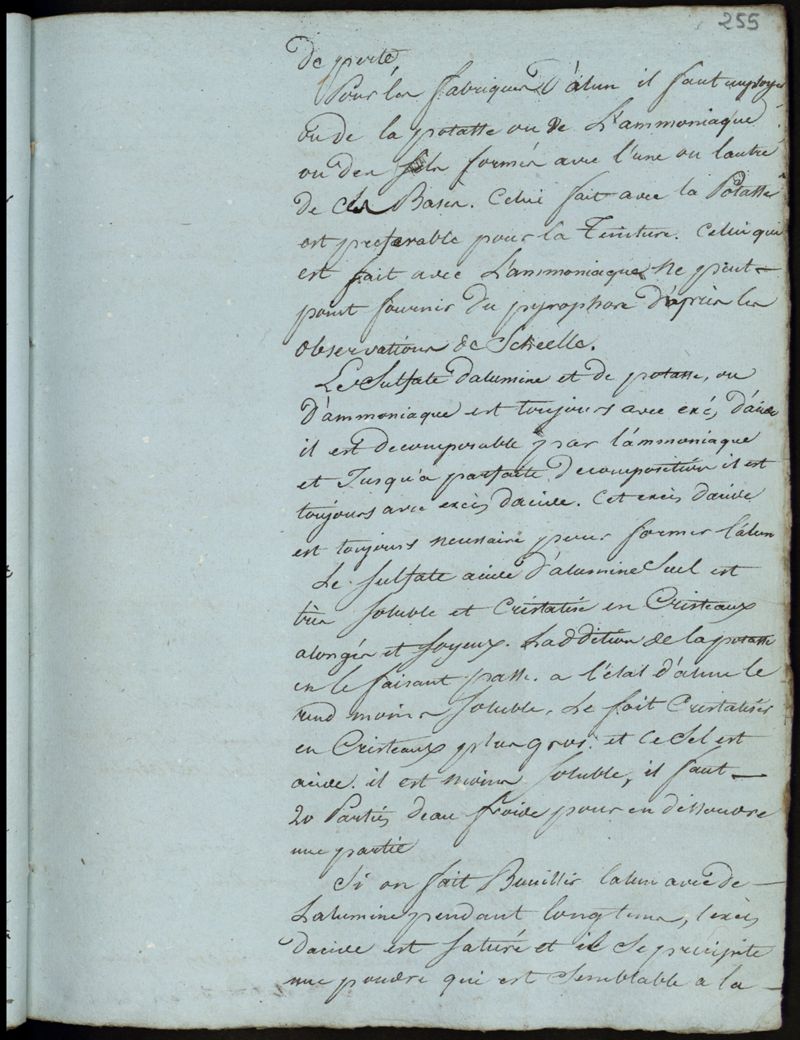 255
de perte,
Pour les fabriques d'alun il faut employer
ou de la potasse ou de L'ammoniaque
ou des sels formés avec l'une ou lautre
de ces Bases. Celui fait avec la Potasse
est preferable pour la Teinture. Celui qui
est fait avec L'ammoniaque ne peut
point fournir du pyrophore d'après les
observations de Scheelle.
Le Sulfate dalumine et de potasse, ou
D'ammoniaque est toujours avec exès d'acide
il est decomposable par l'ammoniaque
et Jusqu'a parfaite decomposition il est
toujours avec excès dacide. Cet excès dacide
est toujours necessaire pour former l'alun
Le sulfate acide d'alumine Seul est
très soluble et Cristalise en Cristeaux
alongés et soyeux. Laddition de la potasse
en le faisant passe. a l'état d'alun le
rend moins soluble, Le fait Cristaliser
en Cristeaux plus gros. et ce Sel est
acide. il est moins soluble, il faut
20 Parties deau froide pour en dissoudre
une partie
Si on fait Bouillir lalun avec de
Lalumine pendant longtems, l'exès
dacide est saturé et il se precipite
une poudre qui est Semblable a la